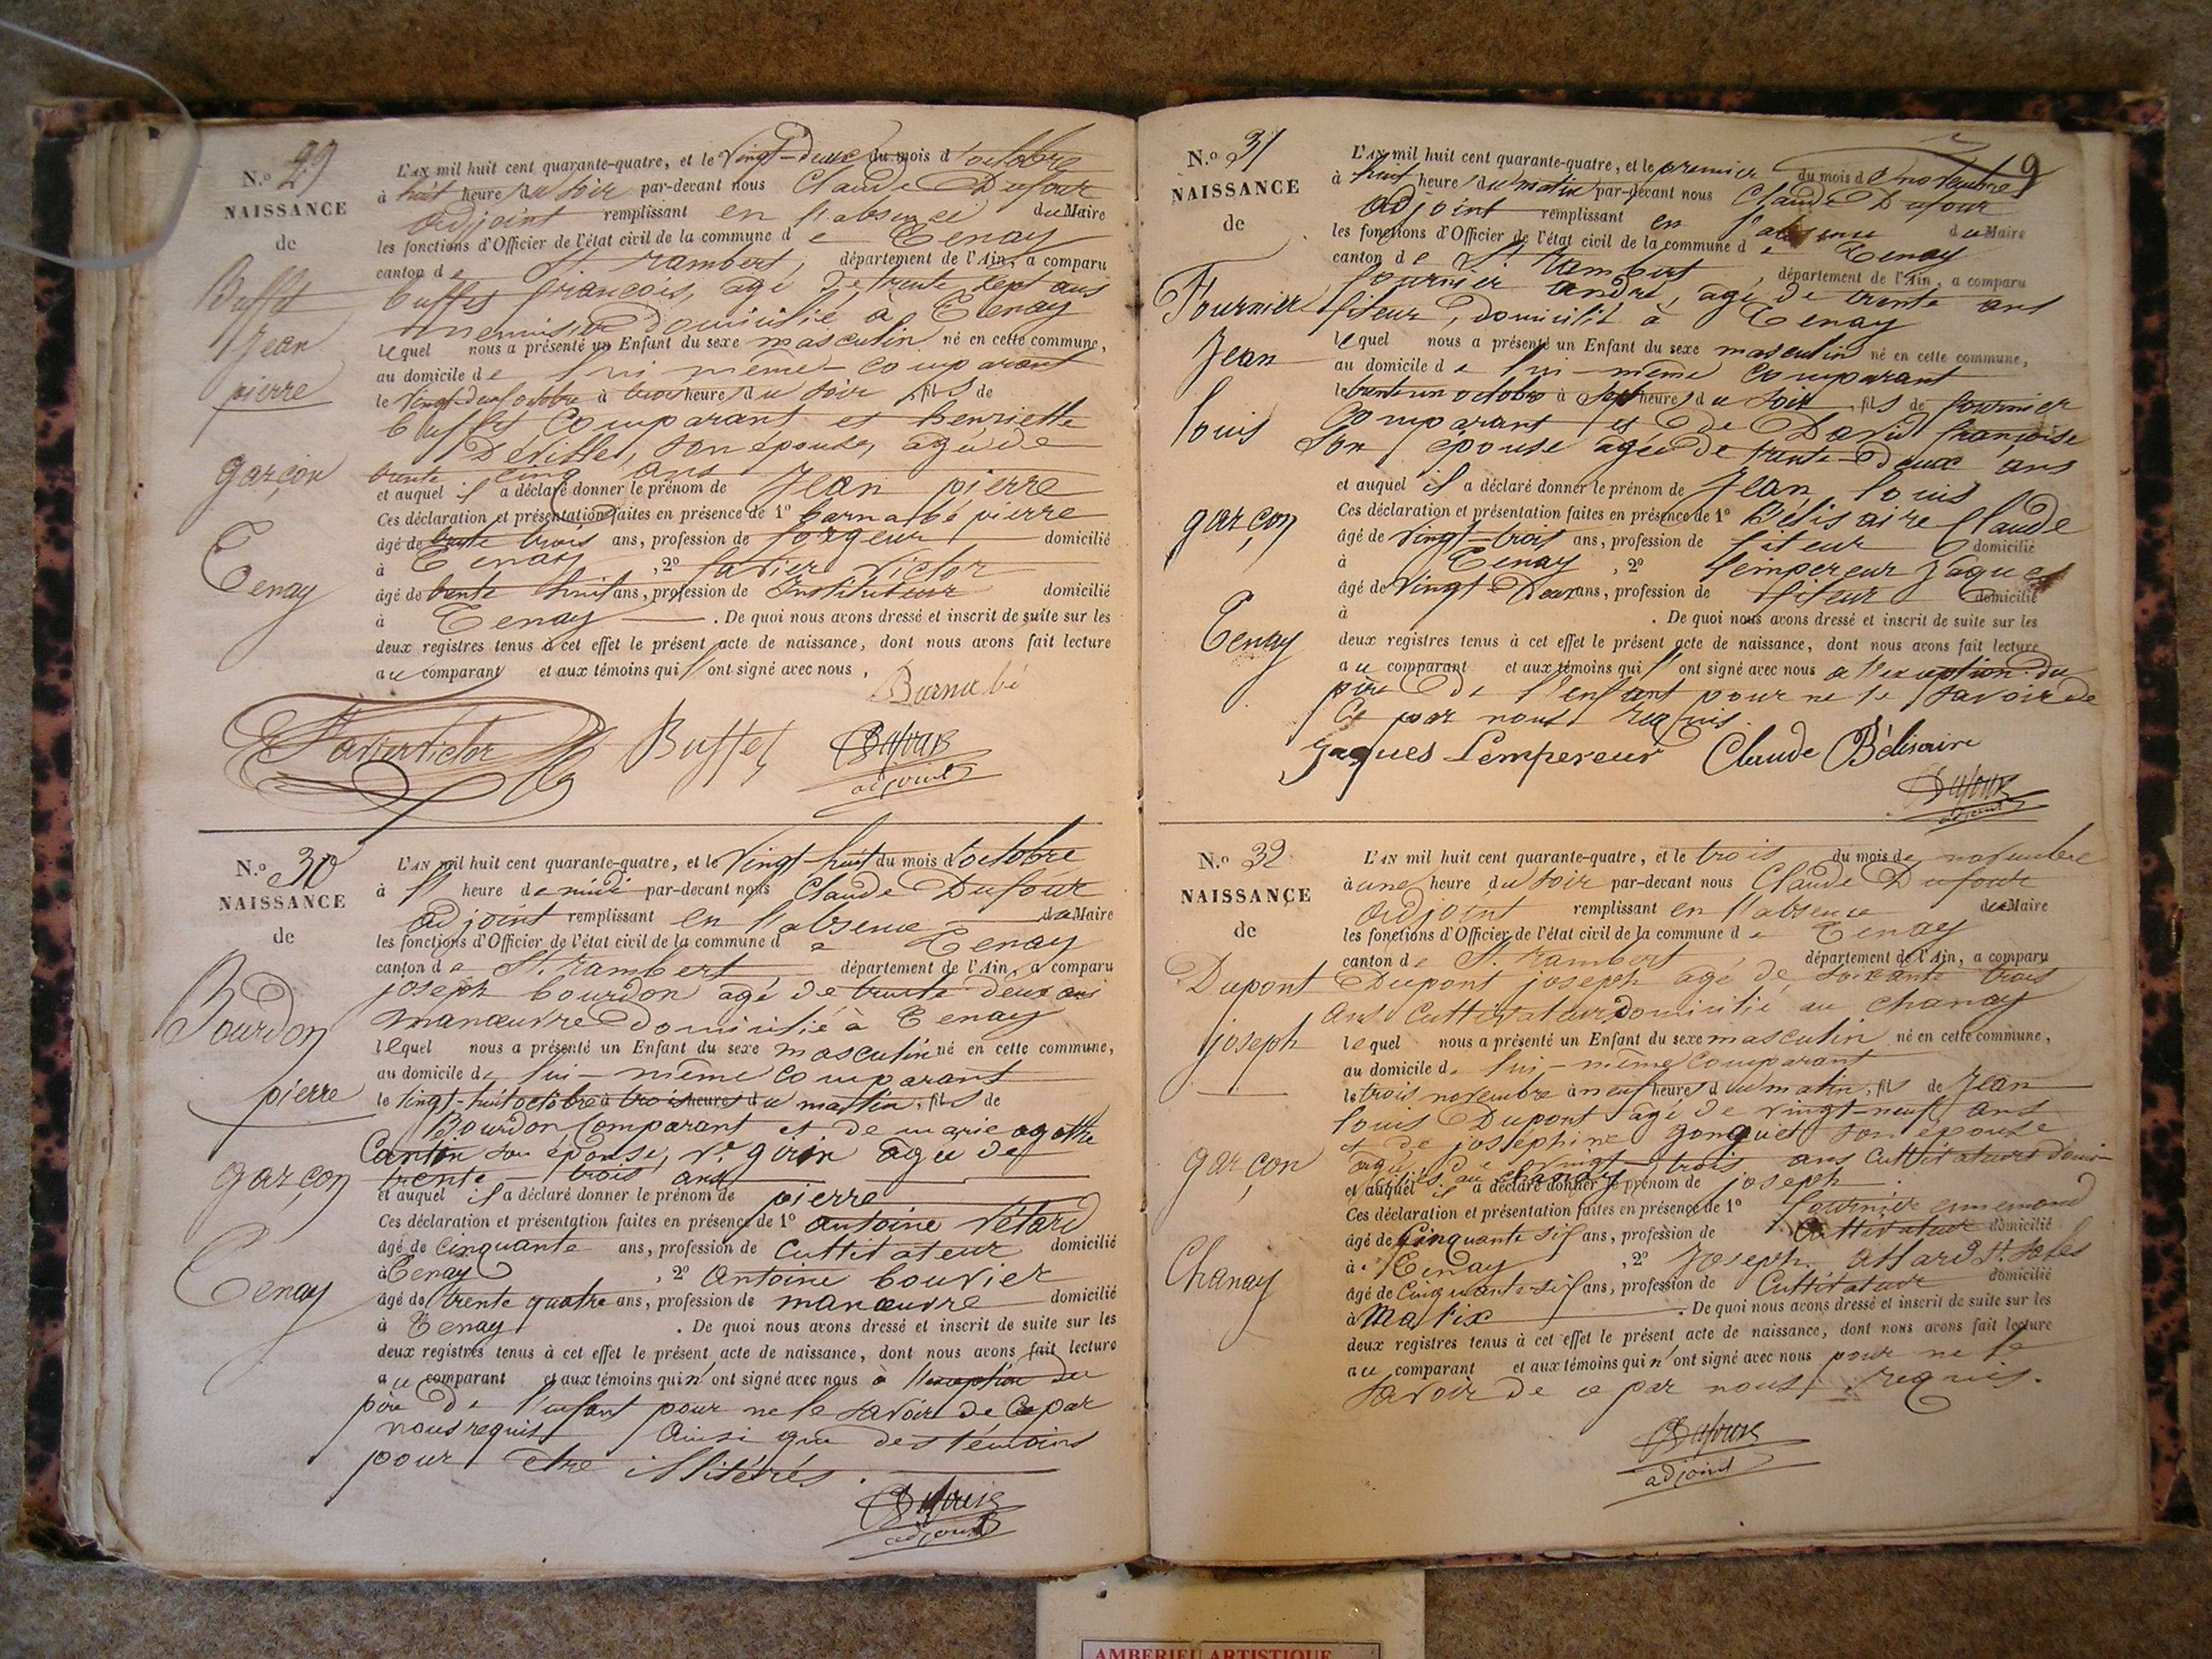 N.º 29
NAISSANCE
de
Buffet
Jean
pierre
garçon
Tenay
L'AN mil huit cent quarante-quatre, et le Vingt-deux du mois d'octobre
à huit heure du soir par-devant nous Claude Dufour
adjoint remplissant en l'absence du Maire
les fonctions d'Officier de l'état civil de la commune de Tenay
canton de St rambert, département de l'Ain, a comparu
buffet françois, agé de trente sept ans
menuisier domicilié à Tenay
lequel nous a présenté un Enfant du sexe masculin né en cette commune,
au domicile de lui même comparant
le Vingt-deux octobre à trois heure du soir, fils de
buffet comparant et henriette
son épouse, agée de
trente cinq ans
et auquel il a déclaré donner le prénom de Jean pierre
Ces déclaration et présentation faites en présence de 1º barnabé pierre
âgé de trente trois ans, profession de forgeur domicilié
à Tenay, 2º Victor
âgé de trente huit ans, profession de Instituteur domicilié
à Tenay. De quoi nous avons dressé et inscrit de suite sur les
deux registres tenus à cet effet le présent acte de naissance, dont nous avons fait lecture
au comparant et aux témoins qui l'ont signé avec nous,
Barnabé
Buffet Dufour
adjoint
N.º 30
NAISSANCE
de
Bourdon
pierre
garçon
Tenay
L'AN mil huit cent quarante-quatre, et le Vingt-huit du mois d'octobre
à l' heure de midi par-devant nous Claude Dufour
adjoint remplissant en l'absence du Maire
les fonctions d'Officier de l'état civil de la commune de Tenay
canton de St. rambert, département de l'Ain, a comparu
joseph bourdon agé de trente deux ans
manœuvre domicilié à Tenay
lequel nous a présenté un Enfant du sexe masculin né en cette commune,
au domicile de lui-même comparant
le vingt-huit octobre à trois heures du matin, fils de
Bourdon Comparant et de marie agathe
Cantin son épouse, Ve girin agée de
trente-trois ans
et auquel il a déclaré donner le prénom de pierre
Ces déclaration et présentation faites en présence de 1º antoine Vétard
âgé de Cinquante ans, profession de Cultivateur domicilié
à Tenay, 2º Antoine bouvier
âgé de trente quatre ans, profession de manœuvre domicilié
à Tenay. De quoi nous avons dressé et inscrit de suite sur les
deux registres tenus à cet effet le présent acte de naissance, dont nous avons fait lecture
au comparant et aux témoins qui n'ont signé avec nous à l'exception du
père de l'enfant pour ne le savoir de Ce par
nous requis Ainsi que des témoins
pour etre illitérés.
Dufour
adjoint
9
N.º 31
NAISSANCE
de
Fournier
Jean
louis
garçon
Tenay
L'AN mil huit cent quarante-quatre, et le premier du mois de novembre
à huit heure du matin par-devant nous Claude Dufour
Adjoint remplissant en l'absence du Maire
les fonctions d'Officier de l'état civil de la commune de Tenay
canton de St rambert, département de l'Ain, a comparu
fournier andré, agé de trente ans
fileur, domicilié à Tenay
lequel nous a présenté un Enfant du sexe masculin né en cette commune,
au domicile de lui-même comparant
le trente un octobre à sept heures du soir, fils de fournier
Comparant et de David françoise
Son épouse agée de trente-deux ans
et auquel il a déclaré donner le prénom de Jean louis
Ces déclaration et présentation faites en présence de 1º Bélisaire Claude
âgé de Vingt-trois ans, profession de fileur domicilié
à Tenay, 2º lempereur Jaques
âgé de Vingt-Deux ans, profession de fileur domicilié
à . De quoi nous avons dressé et inscrit de suite sur les
deux registres tenus à cet effet le présent acte de naissance, dont nous avons fait lecture
au comparant et aux témoins qui l'ont signé avec nous a l'exception du
père de l'enfant pour ne le savoir de
Ce par nous requis.
Jaques Lempereur Claude Bélisaire
Dufour
adjoint
N.º 32
NAISSANCE
de
Dupont
joseph
garçon
Chanay
L'AN mil huit cent quarante-quatre, et le trois du mois de novembre
à une heure du soir par-devant nous Claude Dufour
Adjoint remplissant en l'absence du Maire
les fonctions d'Officier de l'état civil de la commune de Tenay
canton de St. rambert, département de l'Ain, a comparu
Dupont joseph agé de soixante trois
ans Cultivateur domicilié au chanay
lequel nous a présenté un Enfant du sexe masculin né en cette commune,
au domicile de lui-même comparant
le trois novembre à neuf heures du matin, fils de Jean
louis Dupont agé de vingt-neuf ans
et de josephine son épouse
agée de vingt-trois ans Cultivateurs domi-
ciliés au chanay
et auquel il a déclaré donner le prénom de joseph
Ces déclaration et présentation faites en présence de 1º fournier ennemond
âgé de Cinquante six ans, profession de Cultivateur domicilié
à Tenay, 2º Joseph
âgé de Cinquante-six ans, profession de Cultivateur domicilié
à Malix. De quoi nous avons dressé et inscrit de suite sur les
deux registres tenus à cet effet le présent acte de naissance, dont nous avons fait lecture
au comparant et aux témoins qui n'ont signé avec nous pour ne le
savoir de ce par nous requis.
Dufour
adjoint
AMBERIEU ARTISTIQUE